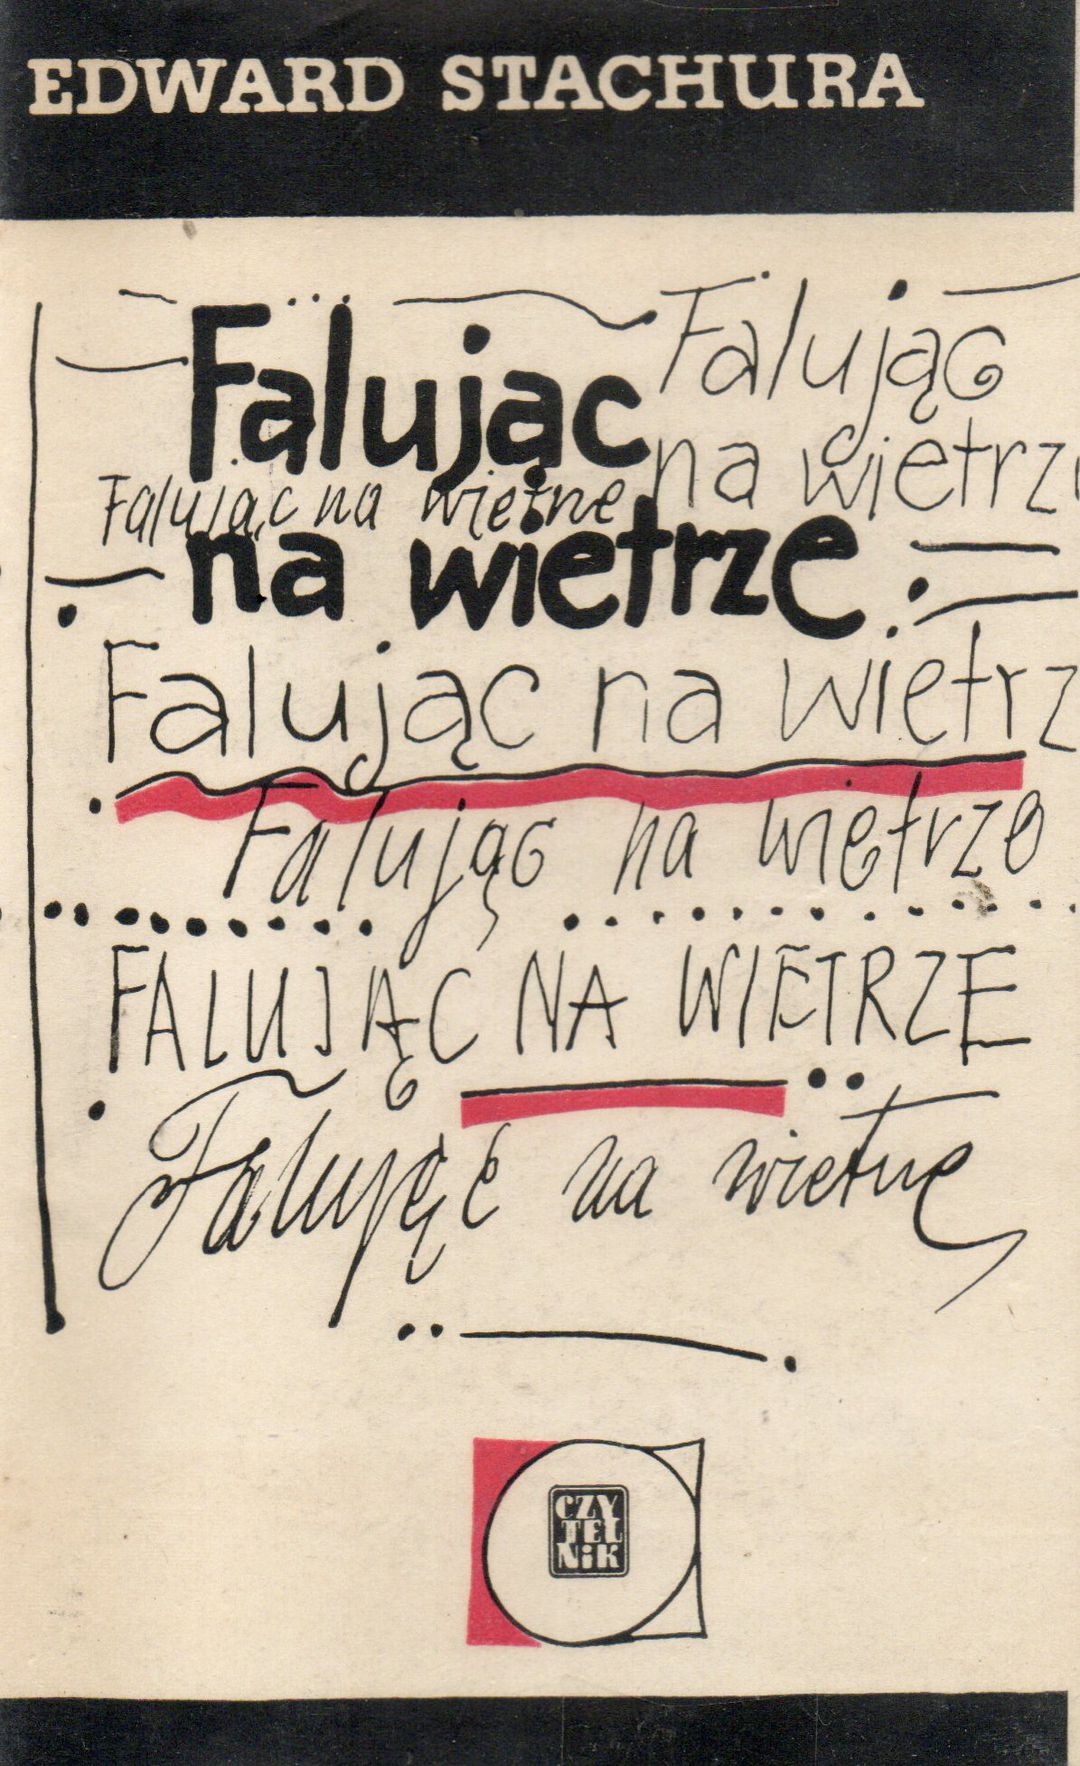 EDWARD STACHURA
Falując
na wietrze
Falując
na wietrz
Falując na wietrze
Falując na wietrz
Falując na wietrze
FALUJĄC NA WIETRZE
Falując na wietrze
CZY
TEL
NiK